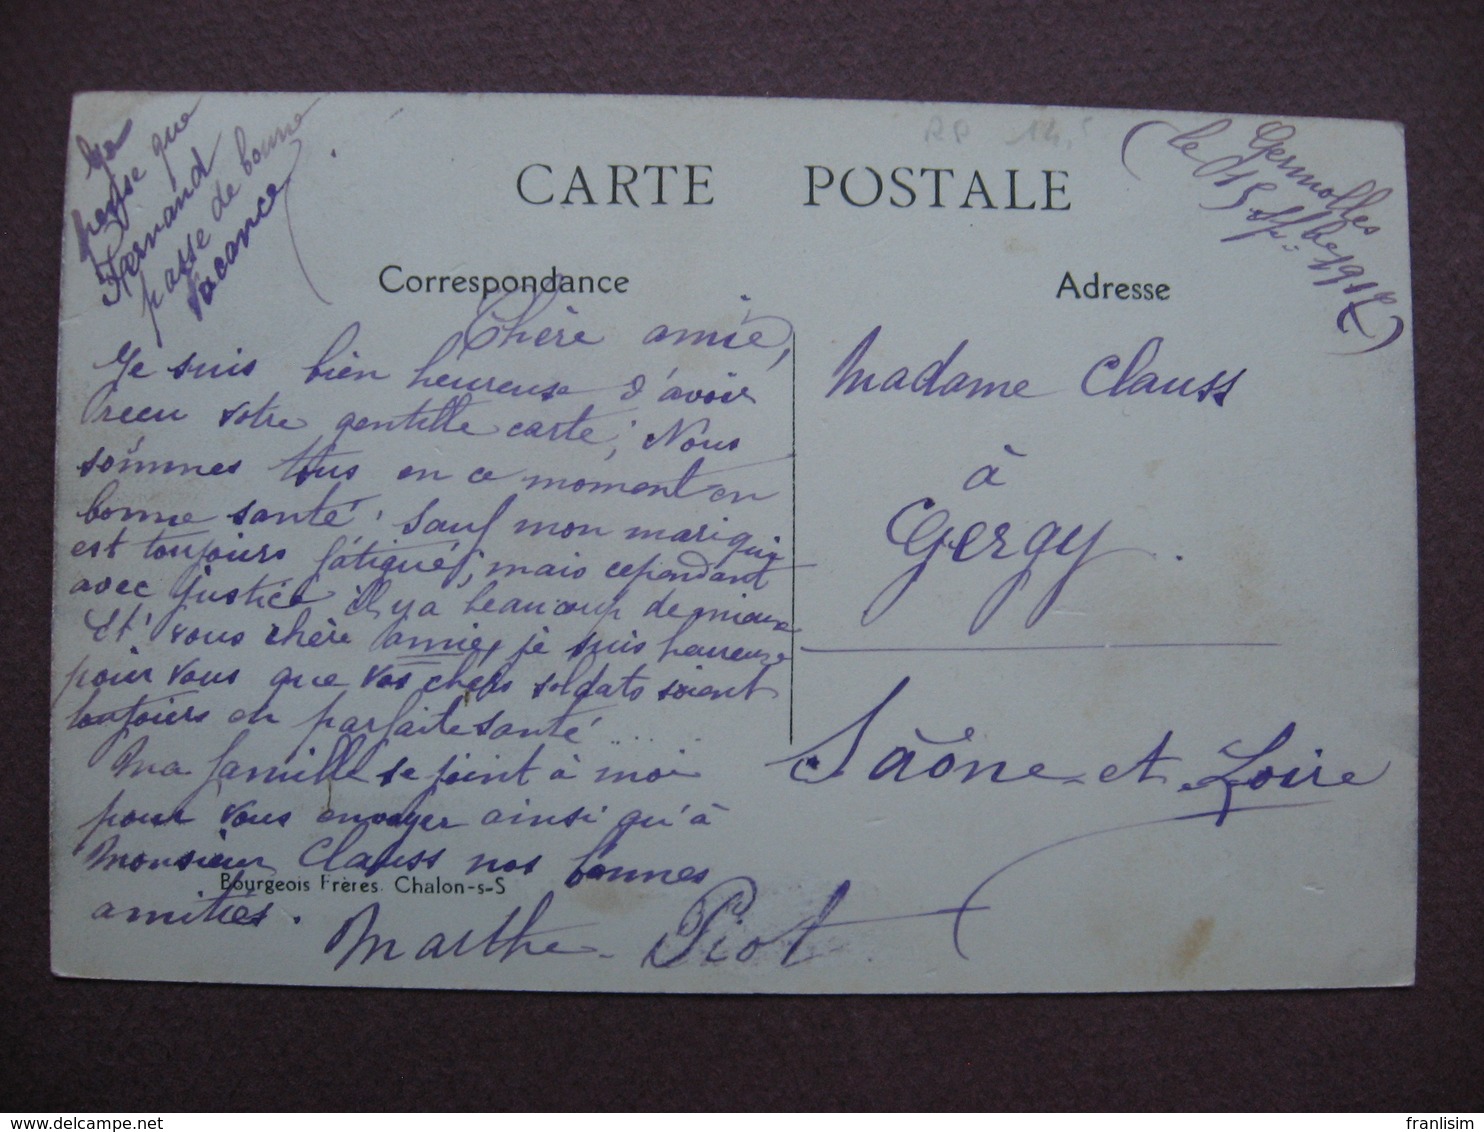 RP 14,5
Germolles
(le 15 7bre 191
CARTE POSTALE
Correspondance
Adresse
Je
pense que
Fernand
passe de bonne
vacance.
Chère amie,
Je suis bien heureuse d'avoir
recu votre gentille carte; Nous
sommes tous en ce moment en
bonne santé, sauf mon mari qui
est toujours fatigué; mais cependant
avec justice il y a beaucoup de mieux
Et vous chère amie, je suis heureuse
pour vous que vos chers soldats soient
toujours en parfaite santé
Ma famille se joint à moi
pour vous envoyer ainsi qu'à
Monsieur Clauss nos bonnes
amitiés.
Marthe Piot
Bourgeois Frères. Chalon-s-S
Madame Clauss
à
Gergy.
Saône-et-Loire
delcampe.net
franlisim